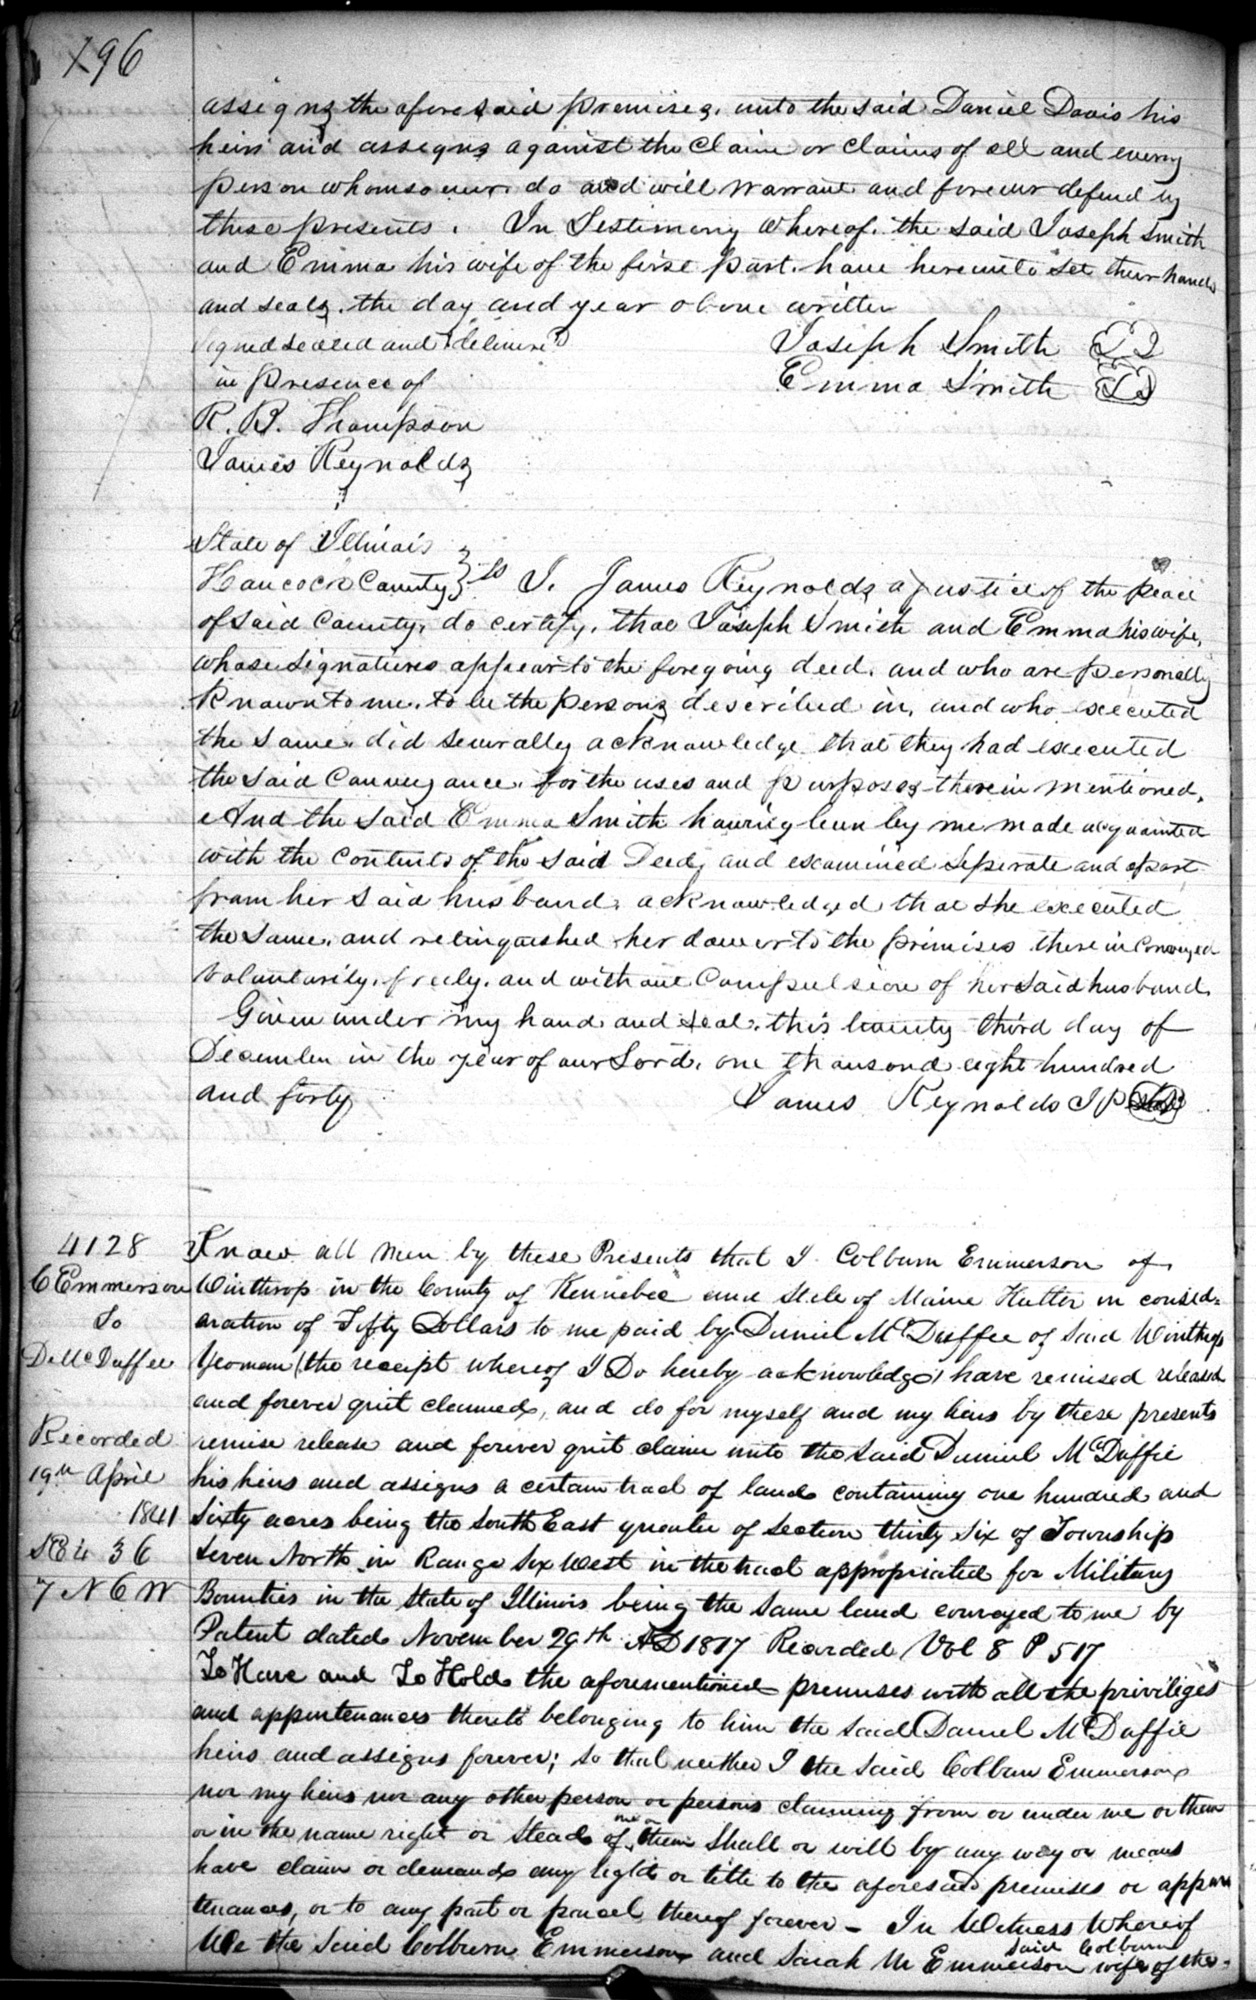 196
assigns the aforesaid premises. unto the said Daniel Davis his
heirs and assigns against the Claim or claims of all and every
person whomsoever do and will warrant and forever defend by
these presents. In Testimony whereof. the said Joseph Smith
and Emma his wife of the first part. have hereunto set their hands
and seals. the day and year above written
Signed sealed and delivered
in presence of
R. B. Thompson
James Reynolds
Joseph Smith LS
Emma Smith LS
State of Illinois
Hancock County } ss I. James Reynolds a justice of the peace
of said County, do certify. that Joseph Smith and Emma his wife.
whose signatures appear to the foregoing deed. and who are personally
known to me. to be the persons described in, and who executed
the same. did severally acknowledge that they had executed
the said Conveyance. for the uses and purposes therein mentioned.
And the said Emma Smith having been by me made acquainted
with the contents of the said Deed, and examined seperate and apart
from her said husband. acknowledged that she executed
the same. and relinquished her dower to the primises therein Conveyed
voluntarily. freely. and without Compulsion of her said husband.
Given under my hand and seal. this twenty third day of
December in the year of our Lord. one thousand eight hundred
and forty
James Reynolds J P Seal
4128
C Emmerson
To
D. McDuffee
Recorded
19th April
1841
SE 4 36
7 N 6 W
Know all Men by these Presents that I Colburn Emmerson of
Winthrop in the County of Kennebec and State of Maine Hatter in consid=
aration of Fifty Dollars to me paid by Daniel McDuffee of said Winthrop
Yeoman (the receipt whereof I Do hereby acknowledge) have remised released
and forever quit claimed, and do for myself and my heirs by these presents
remise release and forever quit claim unto the said Daniel McDuffie
his heirs and assigns a certain tract of land containing one hundred and
sixty acres being the South East quarter of Section thirty six of Township
seven North in Range Six West in the tract appropriated for Military
Bounties in the State of Illinois being the same land conveyed to me by
Patent dated November 29th AD 1817 Recorded Vol 8 P 517
To Have and To Hold the aforementioned premises with all the priviliges
and appurtenances thereto belonging to him the said Daniel McDuffie
heirs and assigns forever; so that neither I the said Colburn Emmerson
nor my heirs nor any other person or persons claiming from or under me or them
or in the name right or Stead of me or them shall or will by any way or means
have claim or demand any right or title to the aforesaid premises or appur
tenances, or to any part or parcel thereof forever - In Witness Whereof
We the said Colburn Emmerson and Sarah M Emmerson wife of the said Colburn